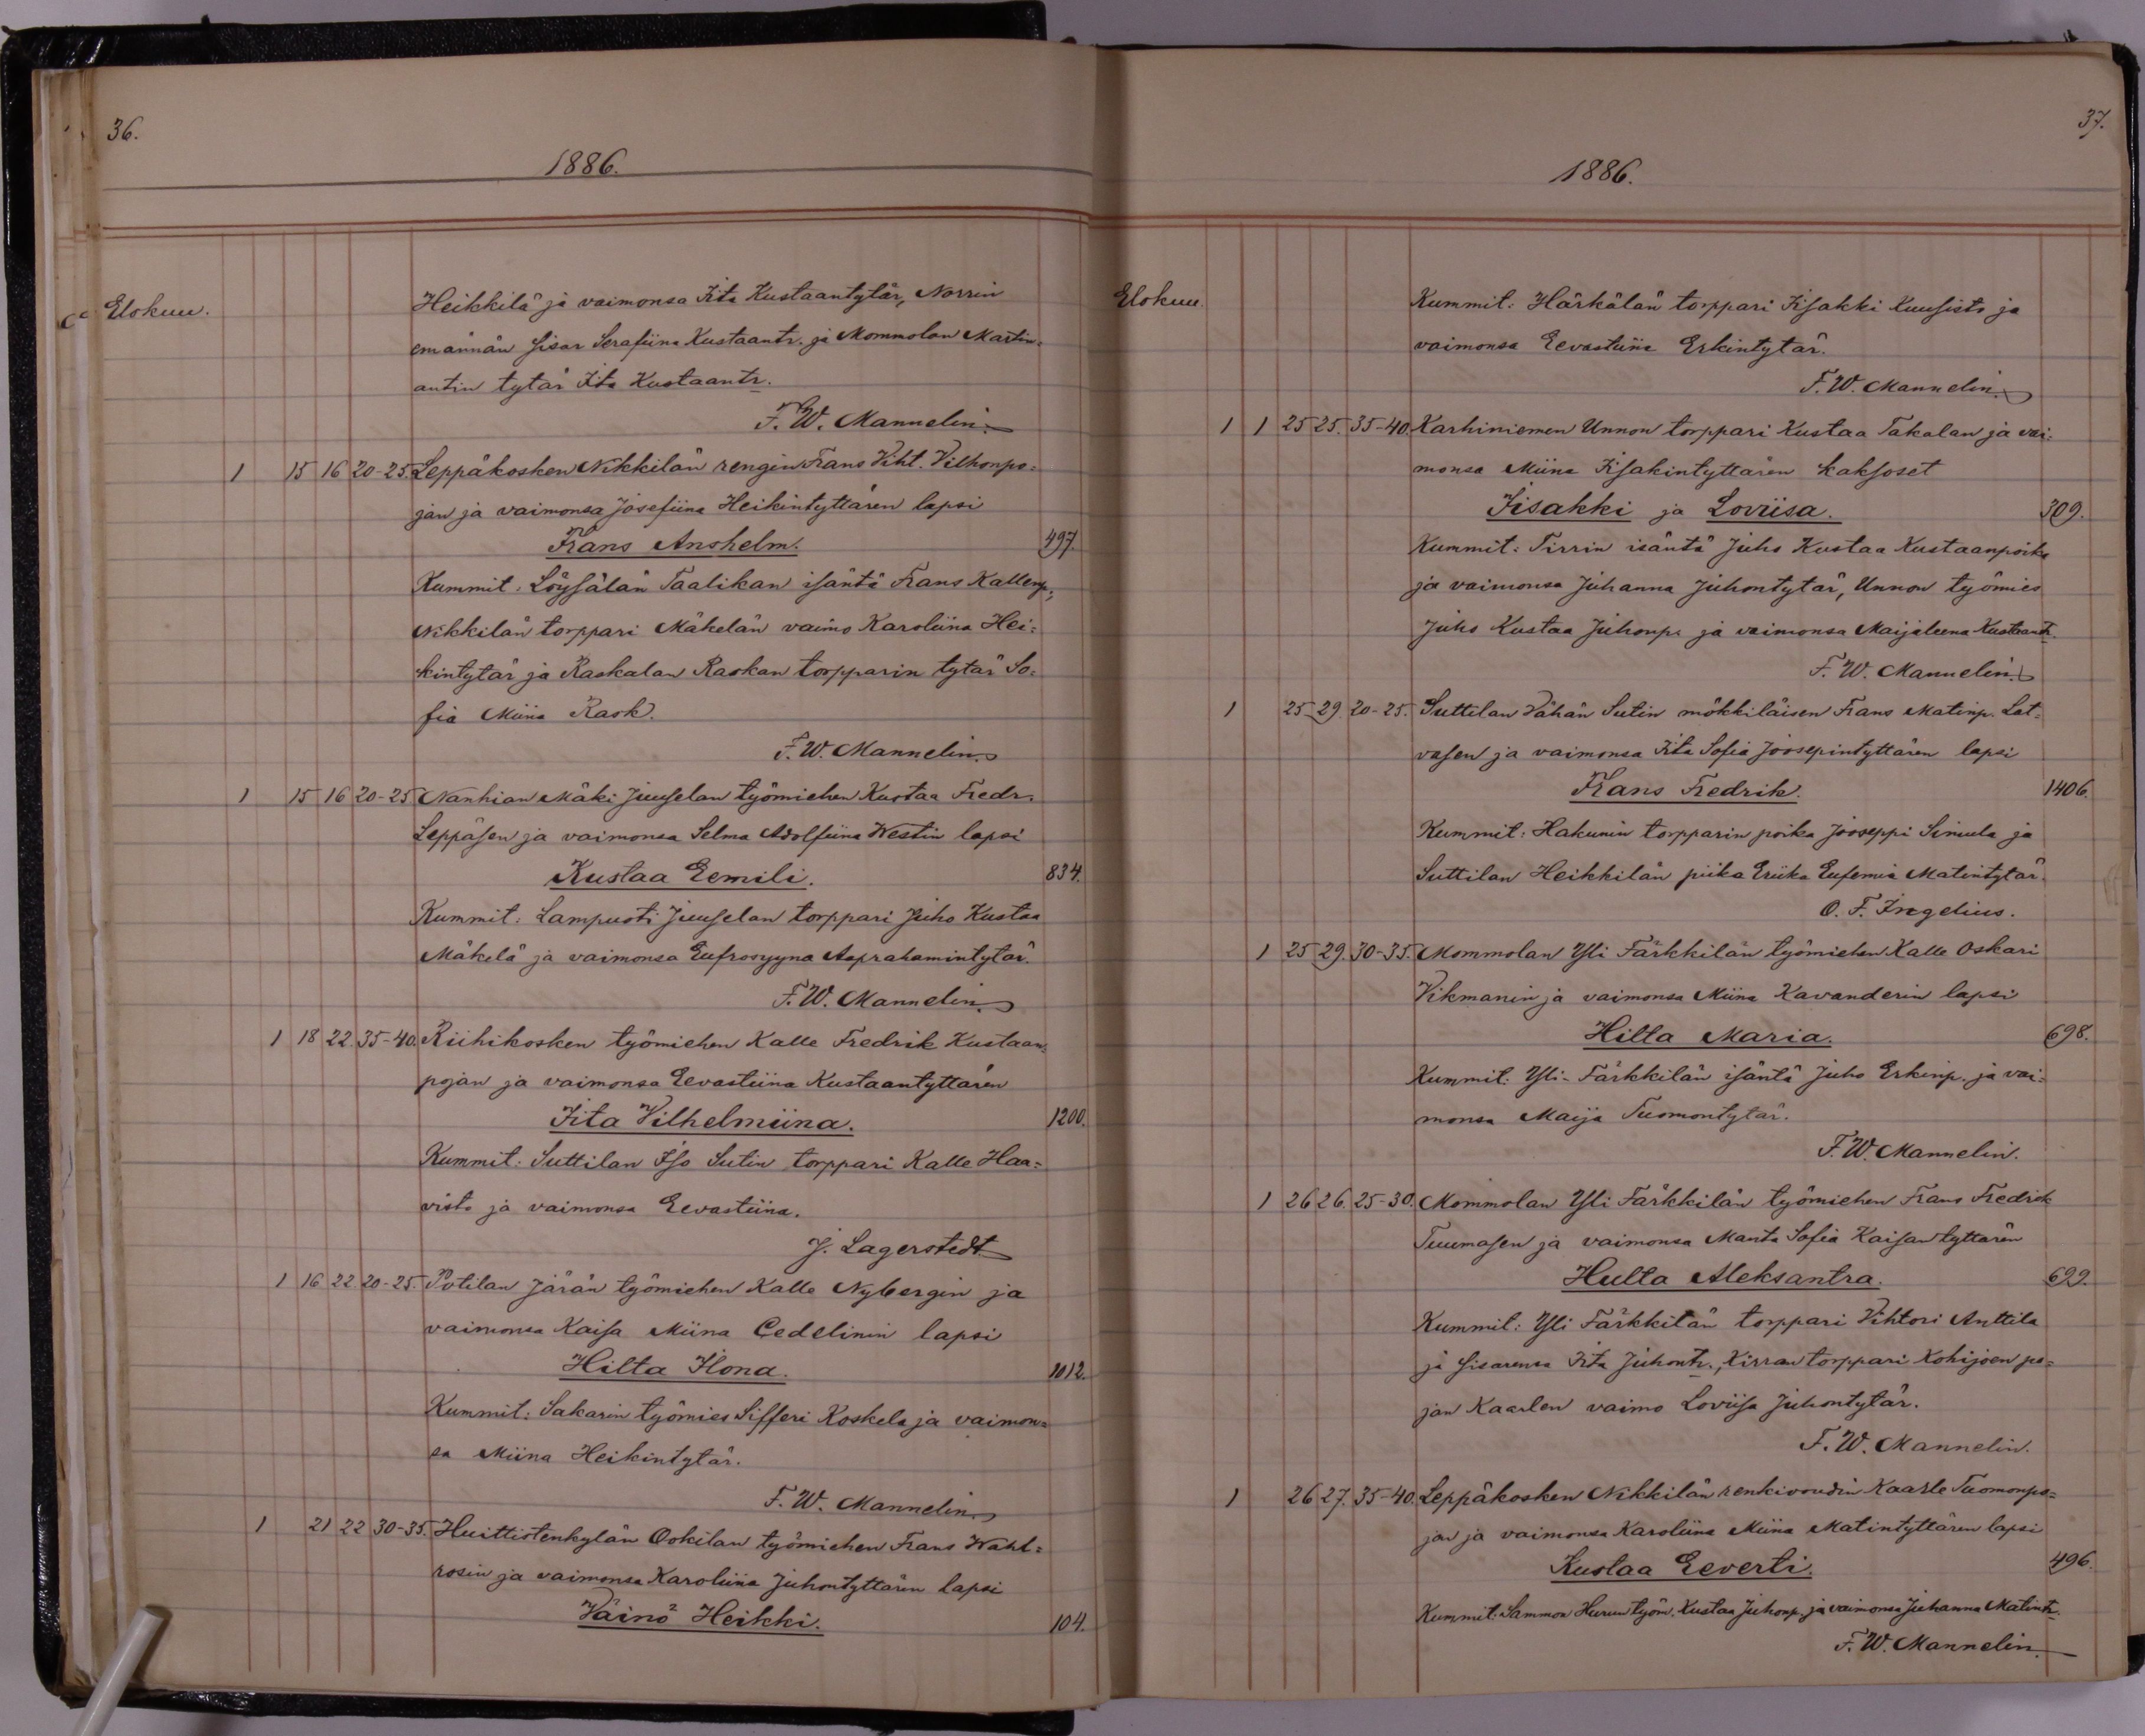 36.
1886.
Elokuu.
Heikkilä ja vaimonsa Iita Kustaantytär, Norrin
emännän sisar Serafiina Kustaantr. ja Mommolan Martin
antin tytär Iita Kustaantr.
F. W. Mannelin.
1 15 16 20-25. Leppäkosken Nikkilän rengin Frans Viht. Vilhonpo=
jan ja vaimonsa Josefiina Heikintyttären lapsi
Frans Anshelm. 497.
Kummit: Löysälän Taalikan isäntä Frans Kallenp.,
Nikkilän torppari Mäkelän vaimo Karoliina Hei=
kintytär ja Raskalan Raskan torpparin tytär So=
fia Miina Rask.
F. W. Mannelin.
1 15 16 20-25 Nanhian Mäki Juuselan työmiehen Kustaa Fredr.
Leppäsen ja vaimonsa Selma Adolfiina Westin lapsi
Kustaa Eemili. 834.
Kummit: Lampuoti Juuselan torppari Juho Kustaa
Mäkelä ja vaimonsa Eufrosyyna Aaprahamintytär.
F. W. Mannelin.
1 18 22. 35-40. Riihikosken työmiehen Kalle Fredrik Kustaan=
pojan ja vaimonsa Eevastiina Kustaantyttären
Iita Vilhelmiina. 1200.
Kummit: Suttilan Iso Sutin torppari Kalle Haa=
visto ja vaimonsa Eevastiina.
J. Lagerstedt
1 16 22 20-25. Potilan Järän työmiehen Kalle Nybergin ja
vaimonsa Kaisa Miina Cedelinin lapsi
Hilta Ilona. 1012.
Kummit: Sakarin työmies Sifferi Koskela ja vaimon=
sa Miina Heikintytär.
F. W. Mannelin.
1 21 22 30-35. Huittistenkylän Ookilan työmiehen Frans Wahl=
rosin ja vaimonsa Karoliina Juhontyttären lapsi
Väinö Heikki. 104.
37.
1886.
Elokuu.
Kummit: Härkälän torppari Iisakki Kuusisto ja
vaimonsa Eevastiina Erkintytär.
F. W. Mannelin.
1 1 25 25. 35-40. Karhiniemen Unnon torppari Kustaa Takalan ja vai=
monsa Miina Iisakintyttären kaksoset
Iisakki ja Loviisa. 309.
Kummit: Tirrin isäntä Juho Kustaa Kustaanpoika
ja vaimonsa Juhanna Juhontytär, Unnon työmies
Juho Kustaa Juhonp. ja vaimonsa Maijaleena Kustaantr.
F. W. Mannelin.
1 25 29. 20-25. Suttilan Vähän Sutin mökkiläisen Frans Matinp. Lat=
vasen ja vaimonsa Iita Sofia Joosepintyttären lapsi
Frans Fredrik. 1406.
Kummit: Hakunin torpparin poika Jooseppi Simula ja
Suttilan Heikkilän piika Eriika Eufemia Matintytär.
O. F. Ingelius.
1 25 29. 30-35. Mommolan Yli Färkkilän työmiehen Kalle Oskari
Vikmanin ja vaimonsa Miina Kavanderin lapsi
Hilta Maria. 698.
Kummit: Yli-Färkkilän isäntä Juho Erkinp. ja vai=
monsa Maija Tuomontytär.
F. W. Mannelin.
1 26 26. 25-30. Mommolan Yli Färkkilän työmiehen Frans Fredrik
Tuumasen ja vaimonsa Manta Sofia Kaisantyttären
Hulta Aleksantra. 699.
Kummit: Yli Färkkilän torppari Vihtori Anttila
ja sisarensa Iita Juhontr., Kirran torppari Kohijoen po=
jan Kaarlen vaimo Loviisa Juhontytär.
F. W. Mannelin.
1 26 27. 35-40. Leppäkosken Nikkilän renkivoudin Kaarle Tuomonpo=
jan ja vaimonsa Karoliina Miina Matintyttären lapsi
Kustaa Eeverti. 496.
Kummit: Sammon Hurun työm. Kustaa Juhonp. ja vaimonsa Juhanna Matintr.
F. W. Mannelin.